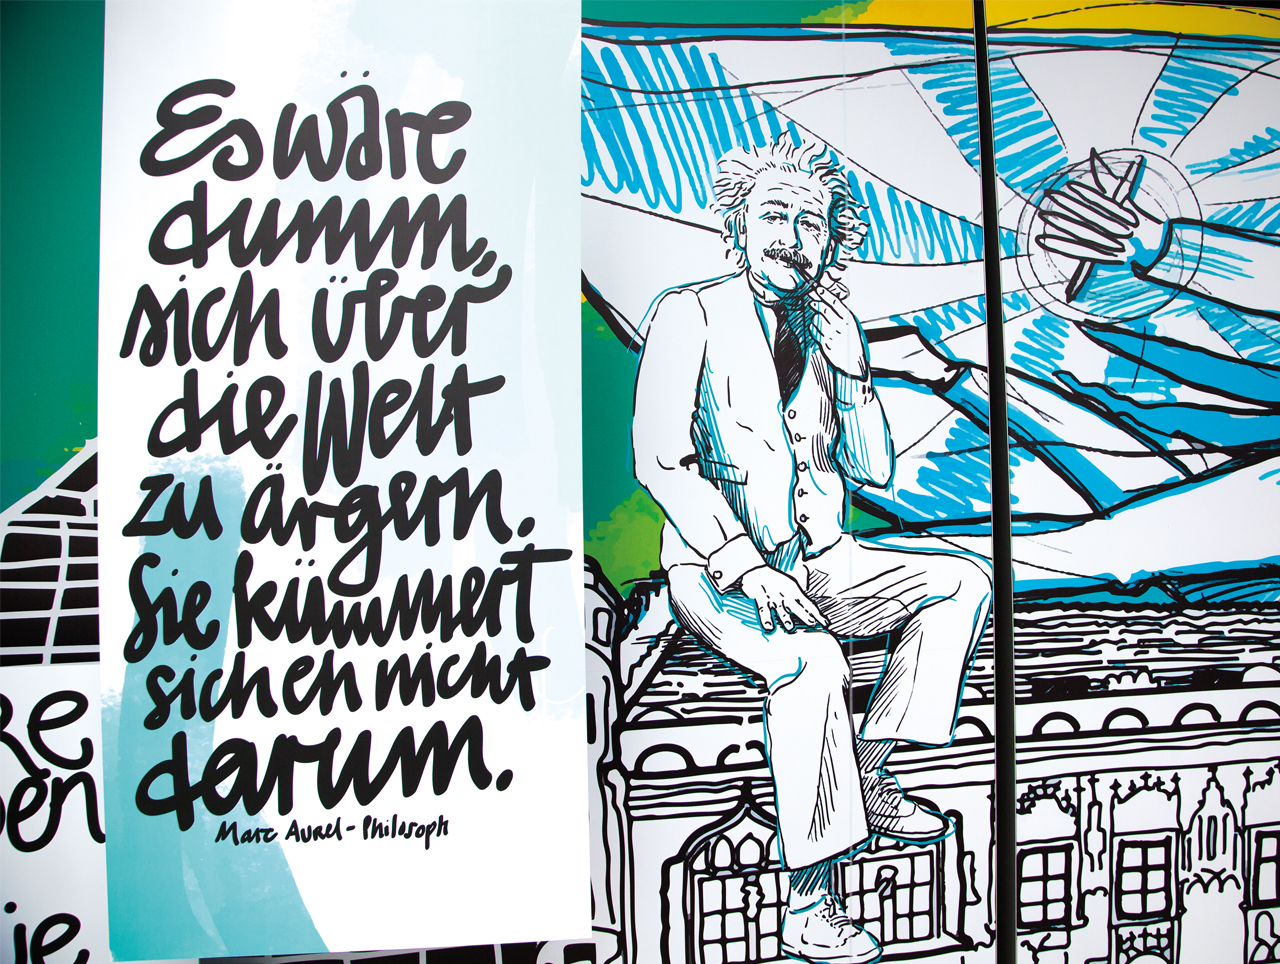 Es wäre
dumm,
sich über
die Welt
zu ärgern.
Sie kümmert
sich eh nicht
darum.
Marc Aurel - Philosoph